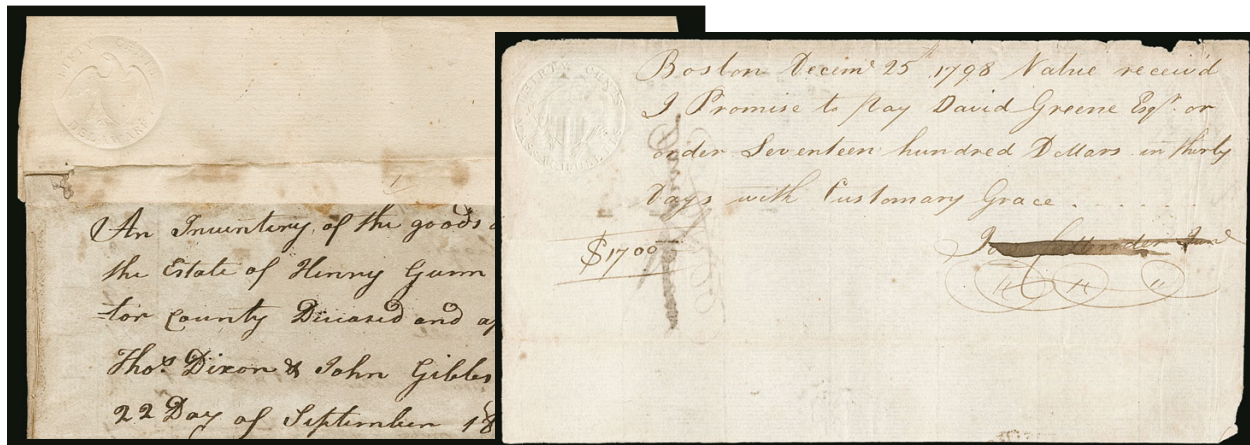 FIFTY CENTS
An Inventory of the goods
the Estate of Henny Gunn
tor County Diceased and
Thos Dixon & John Gibbes
22 Day of September 18
Boston Decimr 25th 1798 Value receiv'd
I Promise to pay David Greene Esqr. or
order Seventeen hundred Dollars in thirty
Days with Customary Grace
$1700